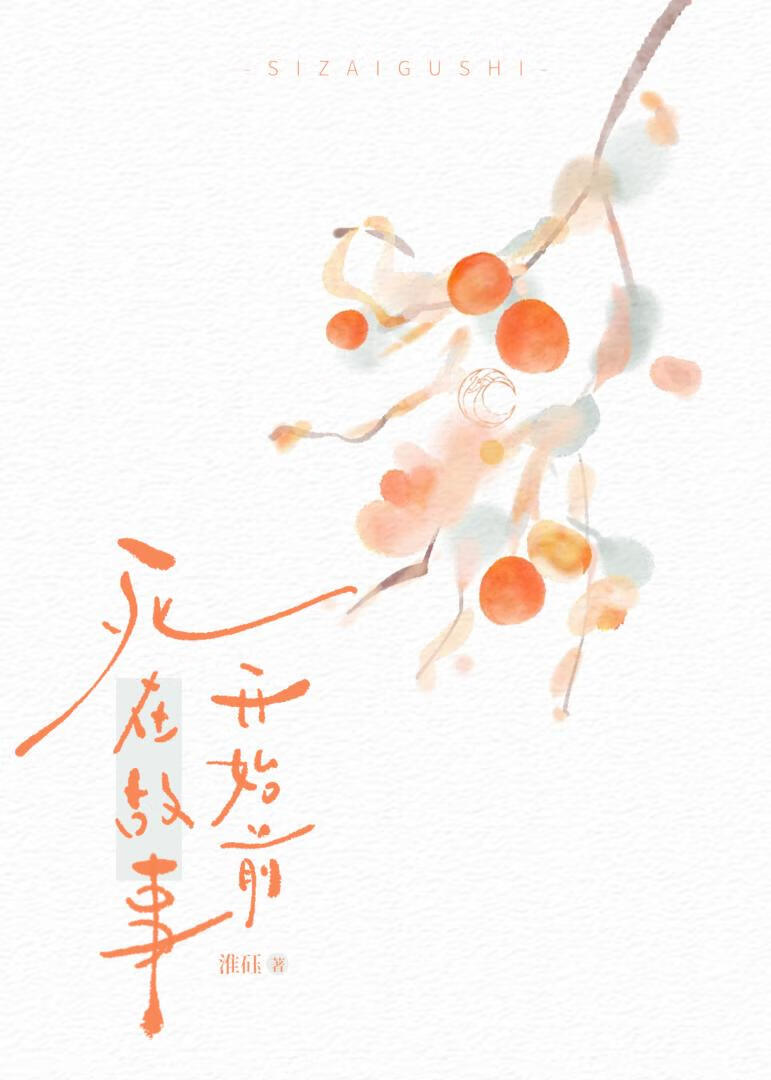 - S I Z A I G U S H I -
死在故事
开始前
淮砡 著